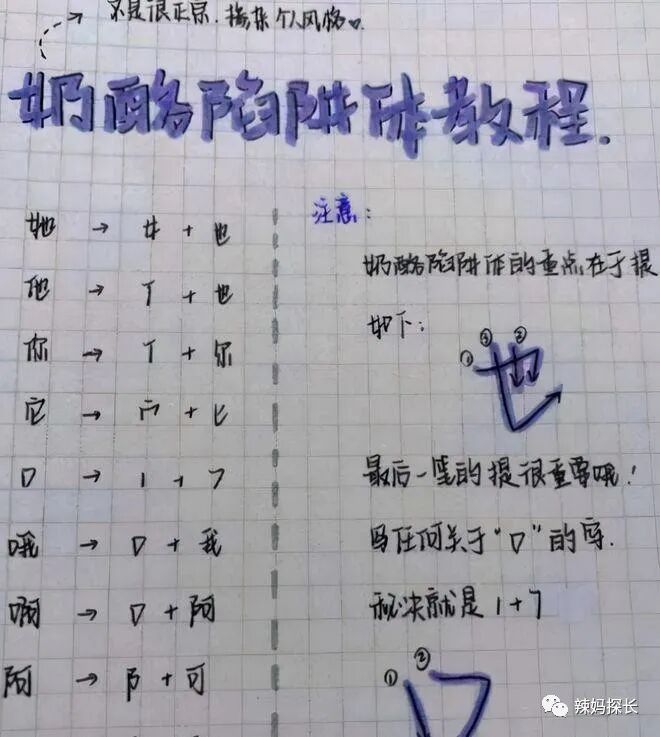 不是很正宗.掺杂个人风格
奶酪陷阱体教程.
她 → 女 + 也
他 → 亻 + 也
你 → 亻 + 尔
它 → 宀 + 匕
口 → 1 + 7
哦 → 口 + 我
啊 → 口 + 阿
阿 → 阝 + 可
注意:
奶酪陷阱体的重点在于提
如下:
① ③ ②
也
最后一笔的提很重要哦!
写任何关于“口”的字.
秘诀就是 1+7
① ②
口
辣妈探长